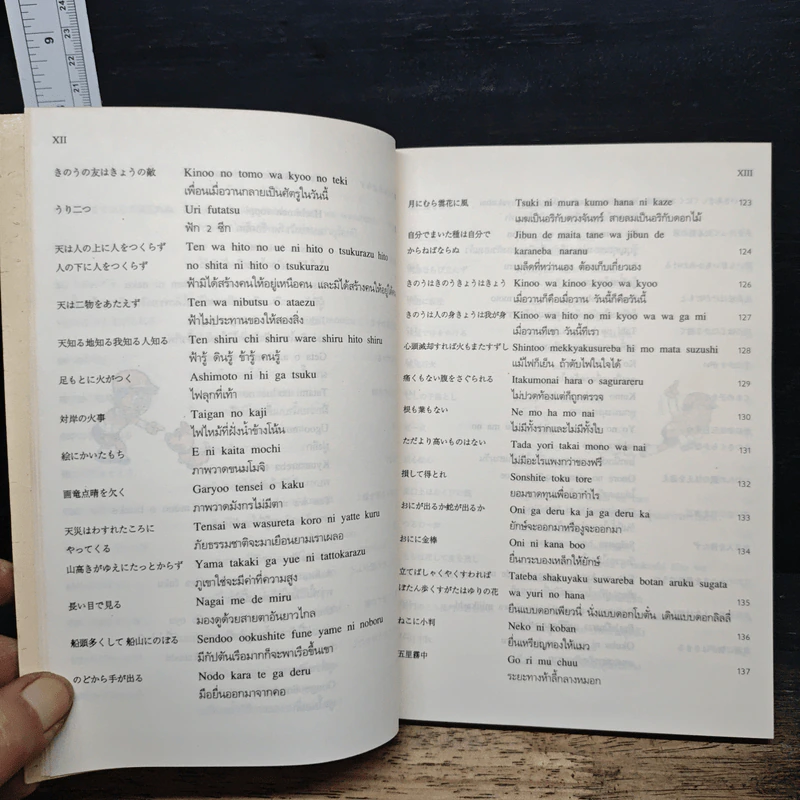 XII
きのうの友はきょうの敵 Kinoo no tomo wa kyoo no teki
เพื่อนเมื่อวานกลายเป็นศัตรูในวันนี้
うり二つ Uri futatsu
ฟัก 2 ซีก
天は人の上に人をつくらず Ten wa hito no ue ni hito o tsukurazu hito
人の下に人をつくらず no shita ni hito o tsukurazu
ฟ้ามิได้สร้างคนให้อยู่เหนือคน และมิได้สร้างคนให้อยู่
天は二物をあたえず Ten wa nibutsu o ataezu
ฟ้าไม่ประทานของให้สองสิ่ง
天知る地知る我知る人知る Ten shiru chi shiru ware shiru hito shiru
ฟ้ารู้ ดินรู้ ข้ารู้ คนรู้
足もとに火がつく Ashimoto ni hi ga tsuku
ไฟลุกที่เท้า
対岸の火事 Taigan no kaji
ไฟไหม้ที่ฝั่งน้ำข้างโน้น
絵にかいたもち E ni kaita mochi
ภาพวาดขนมโมจิ
画竜点晴を欠く Garyoo tensei o kaku
ภาพวาดมังกรไม่มีตา
天災はわすれたころに Tensai wa wasureta koro ni yatte kuru
やってくる ภัยธรรมชาติจะมาเยือนยามเราเผลอ
山高きがゆえにたっとからず Yama takaki ga yue ni tattokarazu
ภูเขาใช่จะมีค่าที่ความสูง
長い目で見る Nagai me de miru
มองดูด้วยสายตาอันยาวไกล
船頭多くして 船山にのぼる Sendoo ookushite fune yame ni noboru
มีกัปตันเรือมากก็จะพาเรือขึ้นเขา
のどから手が出る Nodo kara te ga deru
มือยื่นออกมาจากคอ
XIII
月にむら雲花に風 Tsuki ni mura kumo hana ni kaze 123
เมฆเป็นอริกับดวงจันทร์ สายลมเป็นอริกับดอกไม้
自分でまいた種は自分で Jibun de maita tane wa jibun de
からねばならぬ karaneba naranu 124
เมล็ดที่หว่านเอง ต้องเก็บเกี่ยวเอง
きのうはきのうきょうはきょう Kinoo wa kinoo kyoo wa kyoo 126
เมื่อวานก็คือเมื่อวาน วันนี้ก็คือวันนี้
きのうは人の身きょうは我が身 Kinoo wa hito no mi kyoo wa wa ga mi 127
เมื่อวานทีเขา วันนี้ทีเรา
心頭滅却すれば火もまたすずし Shintoo mekkyakusureba hi mo mata suzushi 128
แม้ไฟก็เย็น ถ้าดับไฟในใจได้
痛くもない腹をさぐられる Itakumonai hara o sagurareru 129
ไม่ปวดท้องแต่ก็ถูกตรวจ
根も葉もない Ne mo ha mo nai 130
ไม่มีทั้งรากและไม่มีทั้งใบ
ただより高いものはない Tada yori takai mono wa nai 131
ไม่มีอะไรแพงกว่าของฟรี
損して得とれ Sonshite toku tore 132
ยอมขาดทุนเพื่อเอากำไร
おにが出るか蛇が出るか Oni ga deru ka ja ga deru ka 133
ยักษ์จะออกมาหรืองูจะออกมา
おにに金棒 Oni ni kana boo 134
ยื่นกระบองเหล็กให้ยักษ์
立てばしゃくやくすわれば Tateba shakuyaku suwareba botan aruku sugata
ぼたん歩くすがたはゆりの花 wa yuri no hana 135
ยืนแบบดอกเพียวนี่ นั่งแบบดอกโบตั๋น เดินแบบดอกลิลลี่
ねこに小判 Neko ni koban 136
ยื่นเหรียญทองให้แมว
五里霧中 Go ri mu chuu 137
ระยะทางห้าลี้กลางหมอก